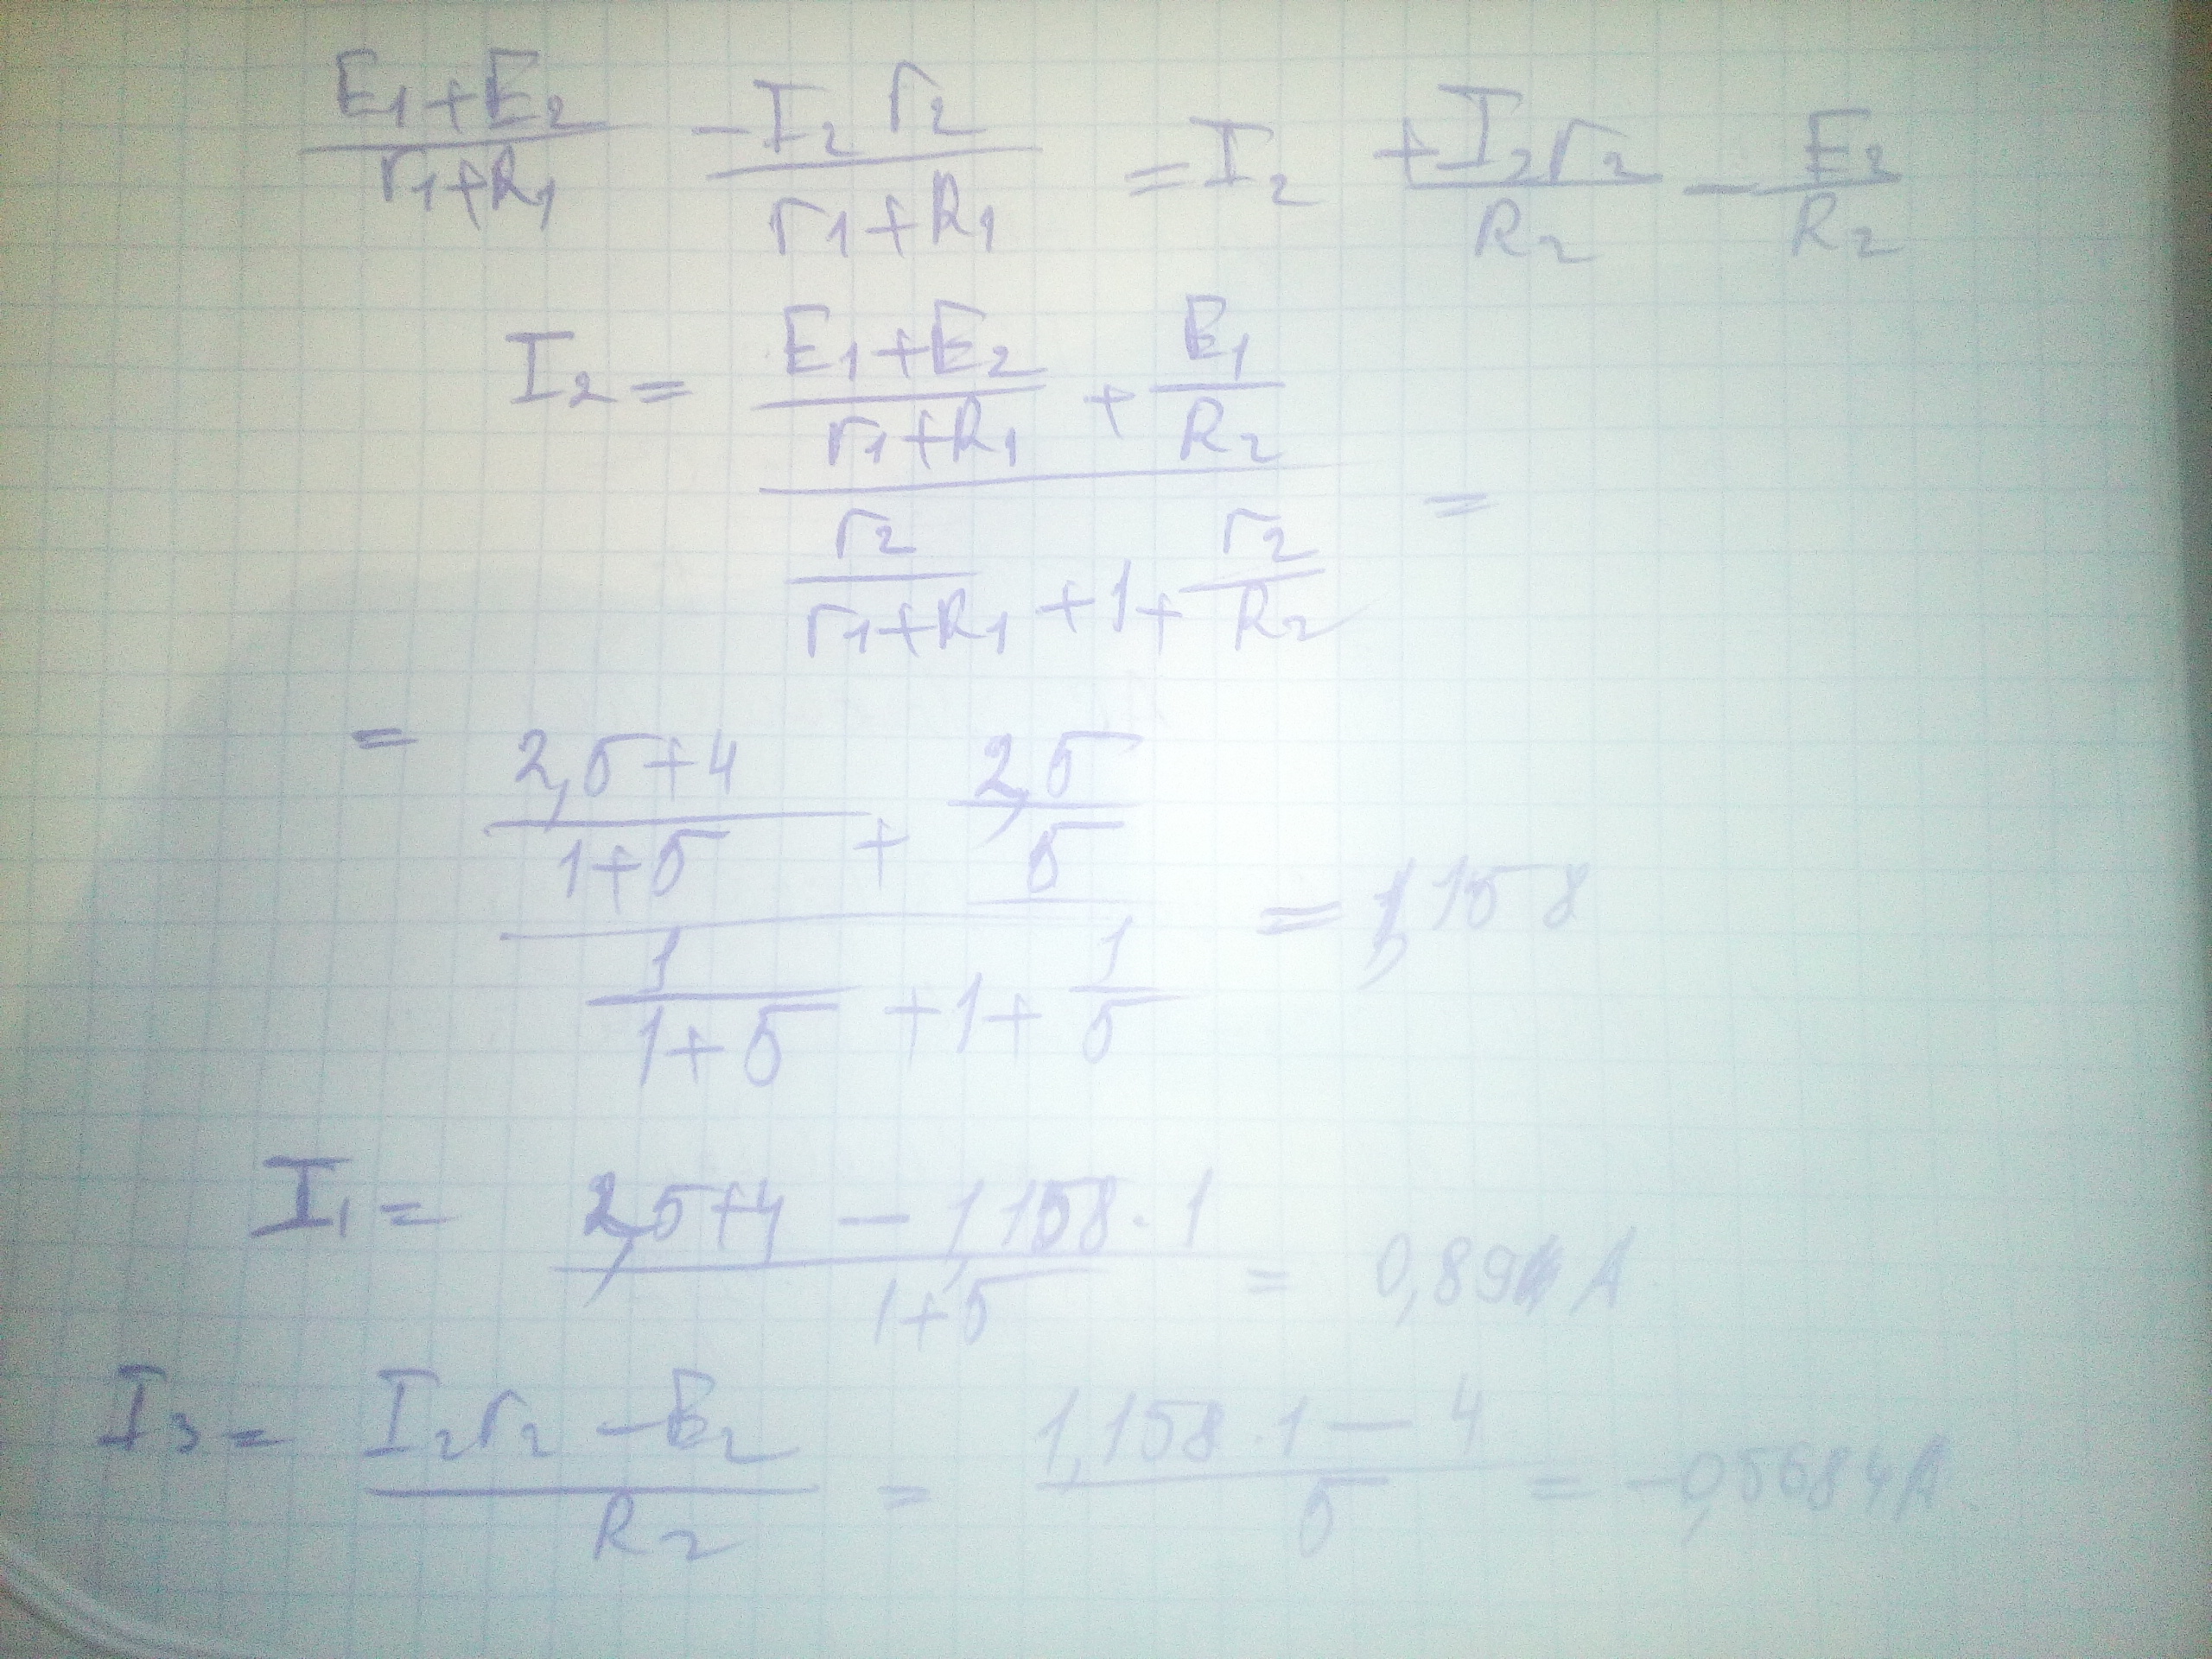 (E1+E2)/(r1+R1) - (I2 r2)/(r1+R1) = I2 + (I2r2)/R2 - E2/R2
I2 = ((E1+E2)/(r1+R1) + E1/R2)/(r2/(r1+R1) + 1 + r2/R2) =
= ((2,5+4)/(1+5) + 2,5/5)/(1/(1+5) + 1 + 1/5) = 1,158
I1 = (2,5+4 - 1,158·1)/(1+5) = 0,89 A
I3 = (I2r2 - E2)/R2 = (1,158·1 - 4)/5 = -0,5684A